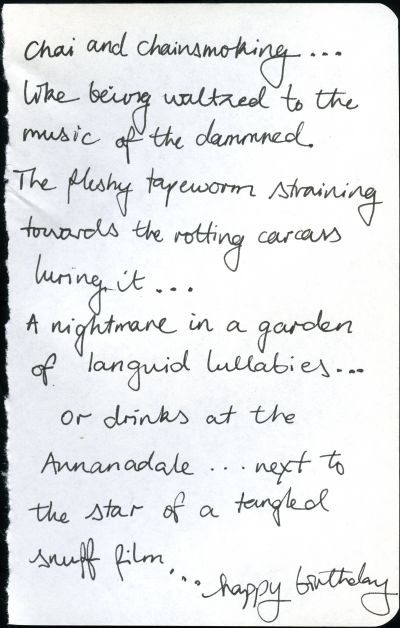 Chai and chainsmoking...
like being waltzed to the
music of the dammned.
The fleshy tapeworm straining
towards the rotting carcass
luring it...
A nightmare in a garden
of languid lullabies...
or drinks at the
Annanadale ... next to
the star of a tangled
snuff film...
happy birthday